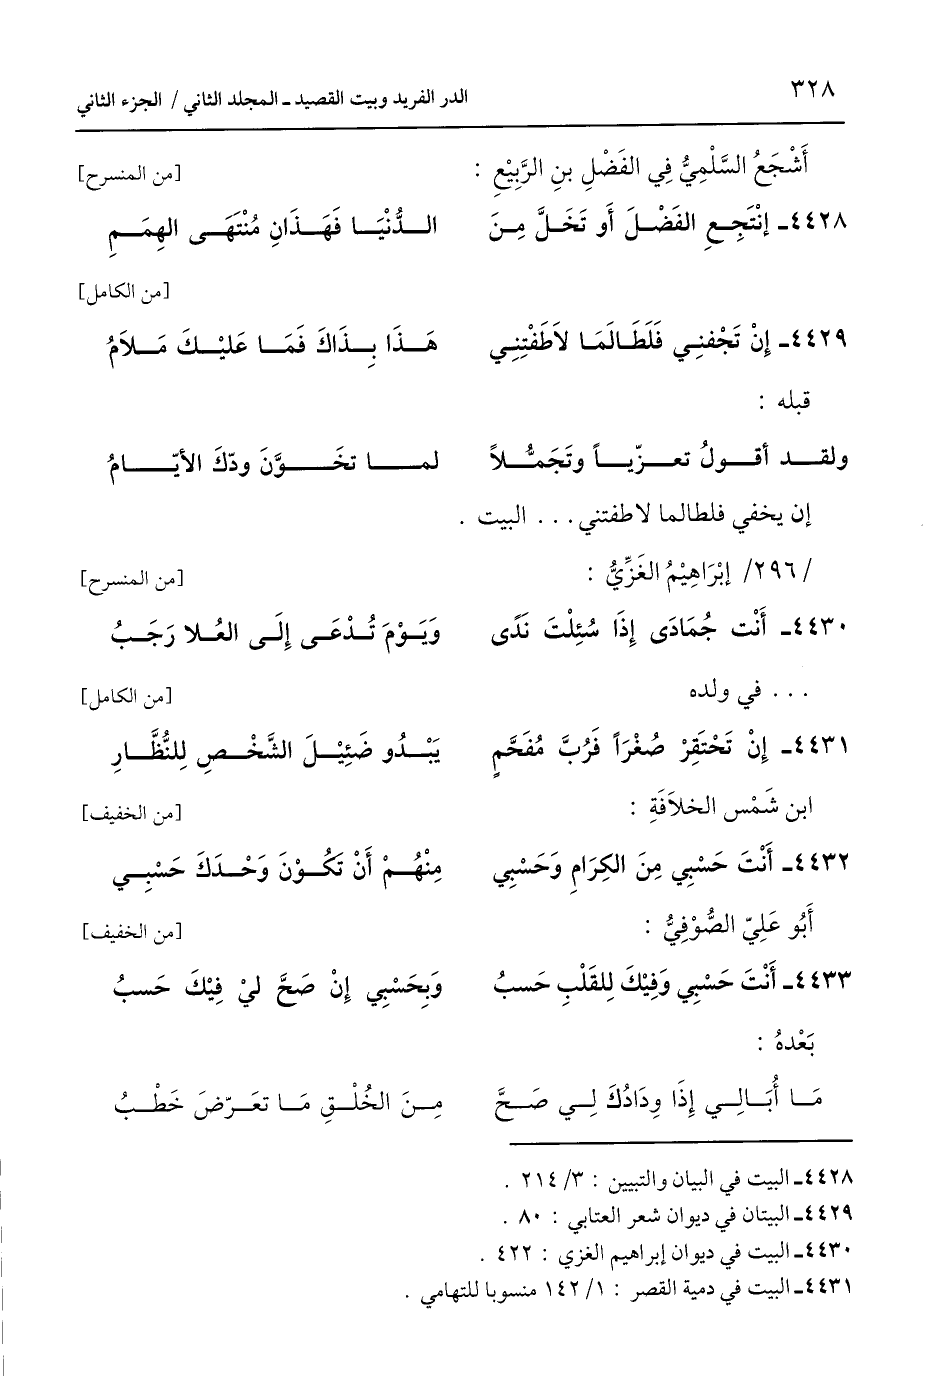 ٣٢٨
الدر الفريد وبيت القصيد ـ المجلد الثاني / الجزء الثاني
أَشْجَعُ السَّلْمِيُّ فِي الفَضْلِ بنِ الرَّبِيْعِ : [من المنسرح]
٤٤٢٨ـ إِنْتَجِعِ الفَضْلَ أَو تَخَلَّ مِنَ الدُّنْيَا فَهَذَانِ مُنْتَهَى الهِمَمِ
[من الكامل]
٤٤٢٩ـ إِنْ تَجْفنِي فَلَطَالَمَا لاَطَفْتِنِي هَذَا بِذَاكَ فَمَا عَلَيْكَ مَلاَمُ
قبله :
ولقد أقولُ تعزّياً وتَجَمُّلاً لما تخَوَّنَ ودّكَ الأيّامُ
إن يخفي فلطالما لاطفتني . . . البيت .
/ ٢٩٦/ إِبْرَاهِيْمُ الغَزِّيُّ : [من المنسرح]
٤٤٣٠ـ أَنْت جُمَادَى إِذَا سُئِلْتَ نَدًى وَيَوْمَ تُدْعَى إِلَى العُلا رَجَبُ
. . . في ولده [من الكامل]
٤٤٣١ـ إِنْ تَحْتَقِرْ صُغْرَاً فَرُبَّ مُفَخَّمٍ يَبْدُو ضَئِيْلَ الشَّخْصِ لِلنُّظَّارِ
ابن شَمْس الخلاَفَةِ : [من الخفيف]
٤٤٣٢ـ أَنْتَ حَسْبِي مِنَ الكِرَامِ وَحَسْبِي مِنْهُمْ أَنْ تَكُوْنَ وَحْدَكَ حَسْبِي
أَبُو عَلِيّ الصُّوْفِيُّ : [من الخفيف]
٤٤٣٣ـ أَنْتَ حَسْبِي وَفِيْكَ لِلقَلْبِ حَسبُ وَبِحَسْبِي إِنْ صَحَّ لِيْ فِيْكَ حَسبُ
بَعْدهُ :
مَا أُبَالِي إِذَا وِدَادُكَ لِي صَحَّ مِنَ الخُلْقِ مَا تعَرّضَ خَطْبُ
٤٤٢٨ـ البيت في البيان والتبيين : ٣/ ٢١٤ .
٤٤٢٩ـ البيتان في ديوان شعر العتابي : ٨٠ .
٤٤٣٠ـ البيت في ديوان إبراهيم الغزي : ٤٢٢ .
٤٤٣١ـ البيت في دمية القصر : ١/ ١٤٢ منسوبا للتهامي .